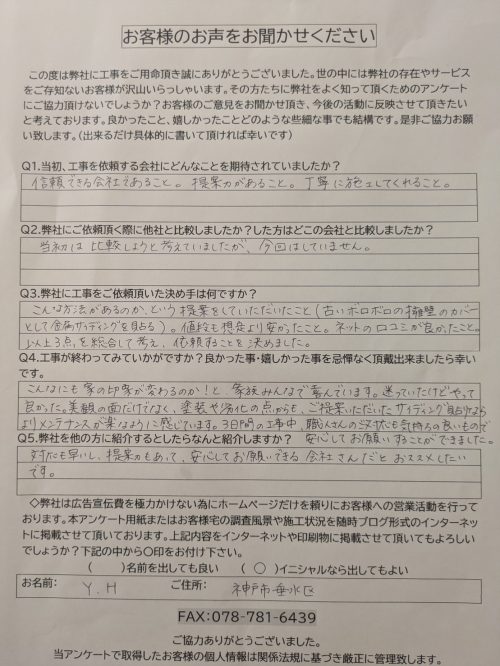 お客様のお声をお聞かせください
この度は弊社に工事をご用命頂き誠にありがとうございました。世の中には弊社の存在やサービス
をご存知ないお客様が沢山いらっしゃいます。その方たちに弊社をよく知って頂くためのアンケート
にご協力頂けないでしょうか？お客様のご意見をお聞かせ頂き、今後の活動に反映させて頂きたい
と考えております。良かったこと、嬉しかったことどのような些細な事でも結構です。是非ご協力お願
い致します。(出来るだけ具体的に書いて頂ければ幸いです)
Q1.当初、工事を依頼する会社にどんなことを期待されていましたか？
信頼できる会社であること。提案力があること。丁寧に施工してくれること。
Q2.弊社にご依頼頂く際に他社と比較しましたか？した方はどこの会社と比較しましたか？
当初は比較しようと考えていましたが、今回はしていません。
Q3.弊社に工事をご依頼頂いた決め手は何ですか？
こんな方法があるのか、という提案をしていただいたこと(古いボロボロの擁壁のカバー
として金属サイディングを貼る)。値段も想像より安かったこと。ネットの口コミが良かったこと。
以上3点を総合して考え、依頼することを決めました。
Q4.工事が終わってみていかがですか？良かった事・嬉しかった事を忌憚なく頂戴出来ましたら幸い
です。
こんなにも家の印象が変わるのか！と家族みんなで喜んでいます。迷っていたけどやって
良かった。美観の面だけでなく、塗装や劣化の点からも、ご提案いただいたサイディング貼りなら
よりメンテナンスが楽なように感じています。3日間の工事中、職人さんの対応も気持ちの良いもので
安心してお願いすることができました。
Q5.弊社を他の方に紹介するとしたらなんと紹介しますか？
対応も早いし、提案力もあって、安心してお願いできる会社さんだとおススメしたい
です。
◇弊社は広告宣伝費を極力かけない為にホームページだけを頼りにお客様への営業活動を行って
おります。本アンケート用紙またはお客様宅の調査風景や施工状況を随時ブログ形式のインターネ
ットに掲載させて頂いております。上記内容をインターネットや印刷物に掲載させて頂いてもよろしい
でしょうか？下記の中から〇印をお付け下さい。
(　　)名前を出しても良い　(　〇　)イニシャルなら出してもよい
お名前：　Y.H　ご住所：　神戸市垂水区
FAX:078-781-6439
ご協力ありがとうございました。
当アンケートで取得したお客様の個人情報は関係法規に基づき厳正に管理致します。